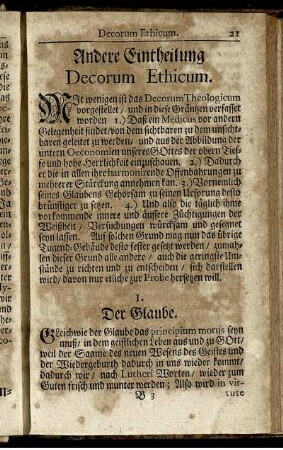 Decorum Ethicum. 21
Andere Eintheilung
Decorum Ethicum.
MIt wenigen ist das Decorum Theologicum
vorgestellet / und in diese Gräntzen verfasset
worden 1.) Daß ein Medicus vor andern
Gelegenheit findet / von dem sichtbaren zu dem unsicht-
baren geleitet zu werden / und aus der Abbildung der
untern Oeconomien unsers GOttes der obern Tief-
fe und hohe Herrlichkeit einzuschauen. 2.) Dadurch
er die in allen ihre harmonirende Offenbahrungen zu
mehrerer Stärckung annehmen kan. 3.) Vornemlich
seines Glaubens Gehorsam zu seinen Ursprung desto
brünstiger zu zegen. 4.) Und also die täglich ihme
vorkommende innere und äussere Züchtigungen der
Weißheit / Versuchungen würcksam und gesegnet
seyn lassen. Auf solchen Grund mag nun das übrige
Tugend-Gebäude desto fester gesetzt werden / zumah-
len dieser Grund alle andere / auch die geringste Um-
stände zu richten und zu entscheiden / sich darstellen
wird / davon nur etliche zur Probe hersetzen will.
I.
Der Glaube.
GLeichwie der Glaube das principium motus seyn
muß / in dem geistlichen Leben aus und zu GOtt /
weil der Saame des neuen Wesens des Geistes und
der Wiedergeburth dadurch in uns wieder kommt /
dadurch wir / nach Lutheri Worten / wieder zum
Guten frisch und munter werden; Also wird in vir-
B 3 tute